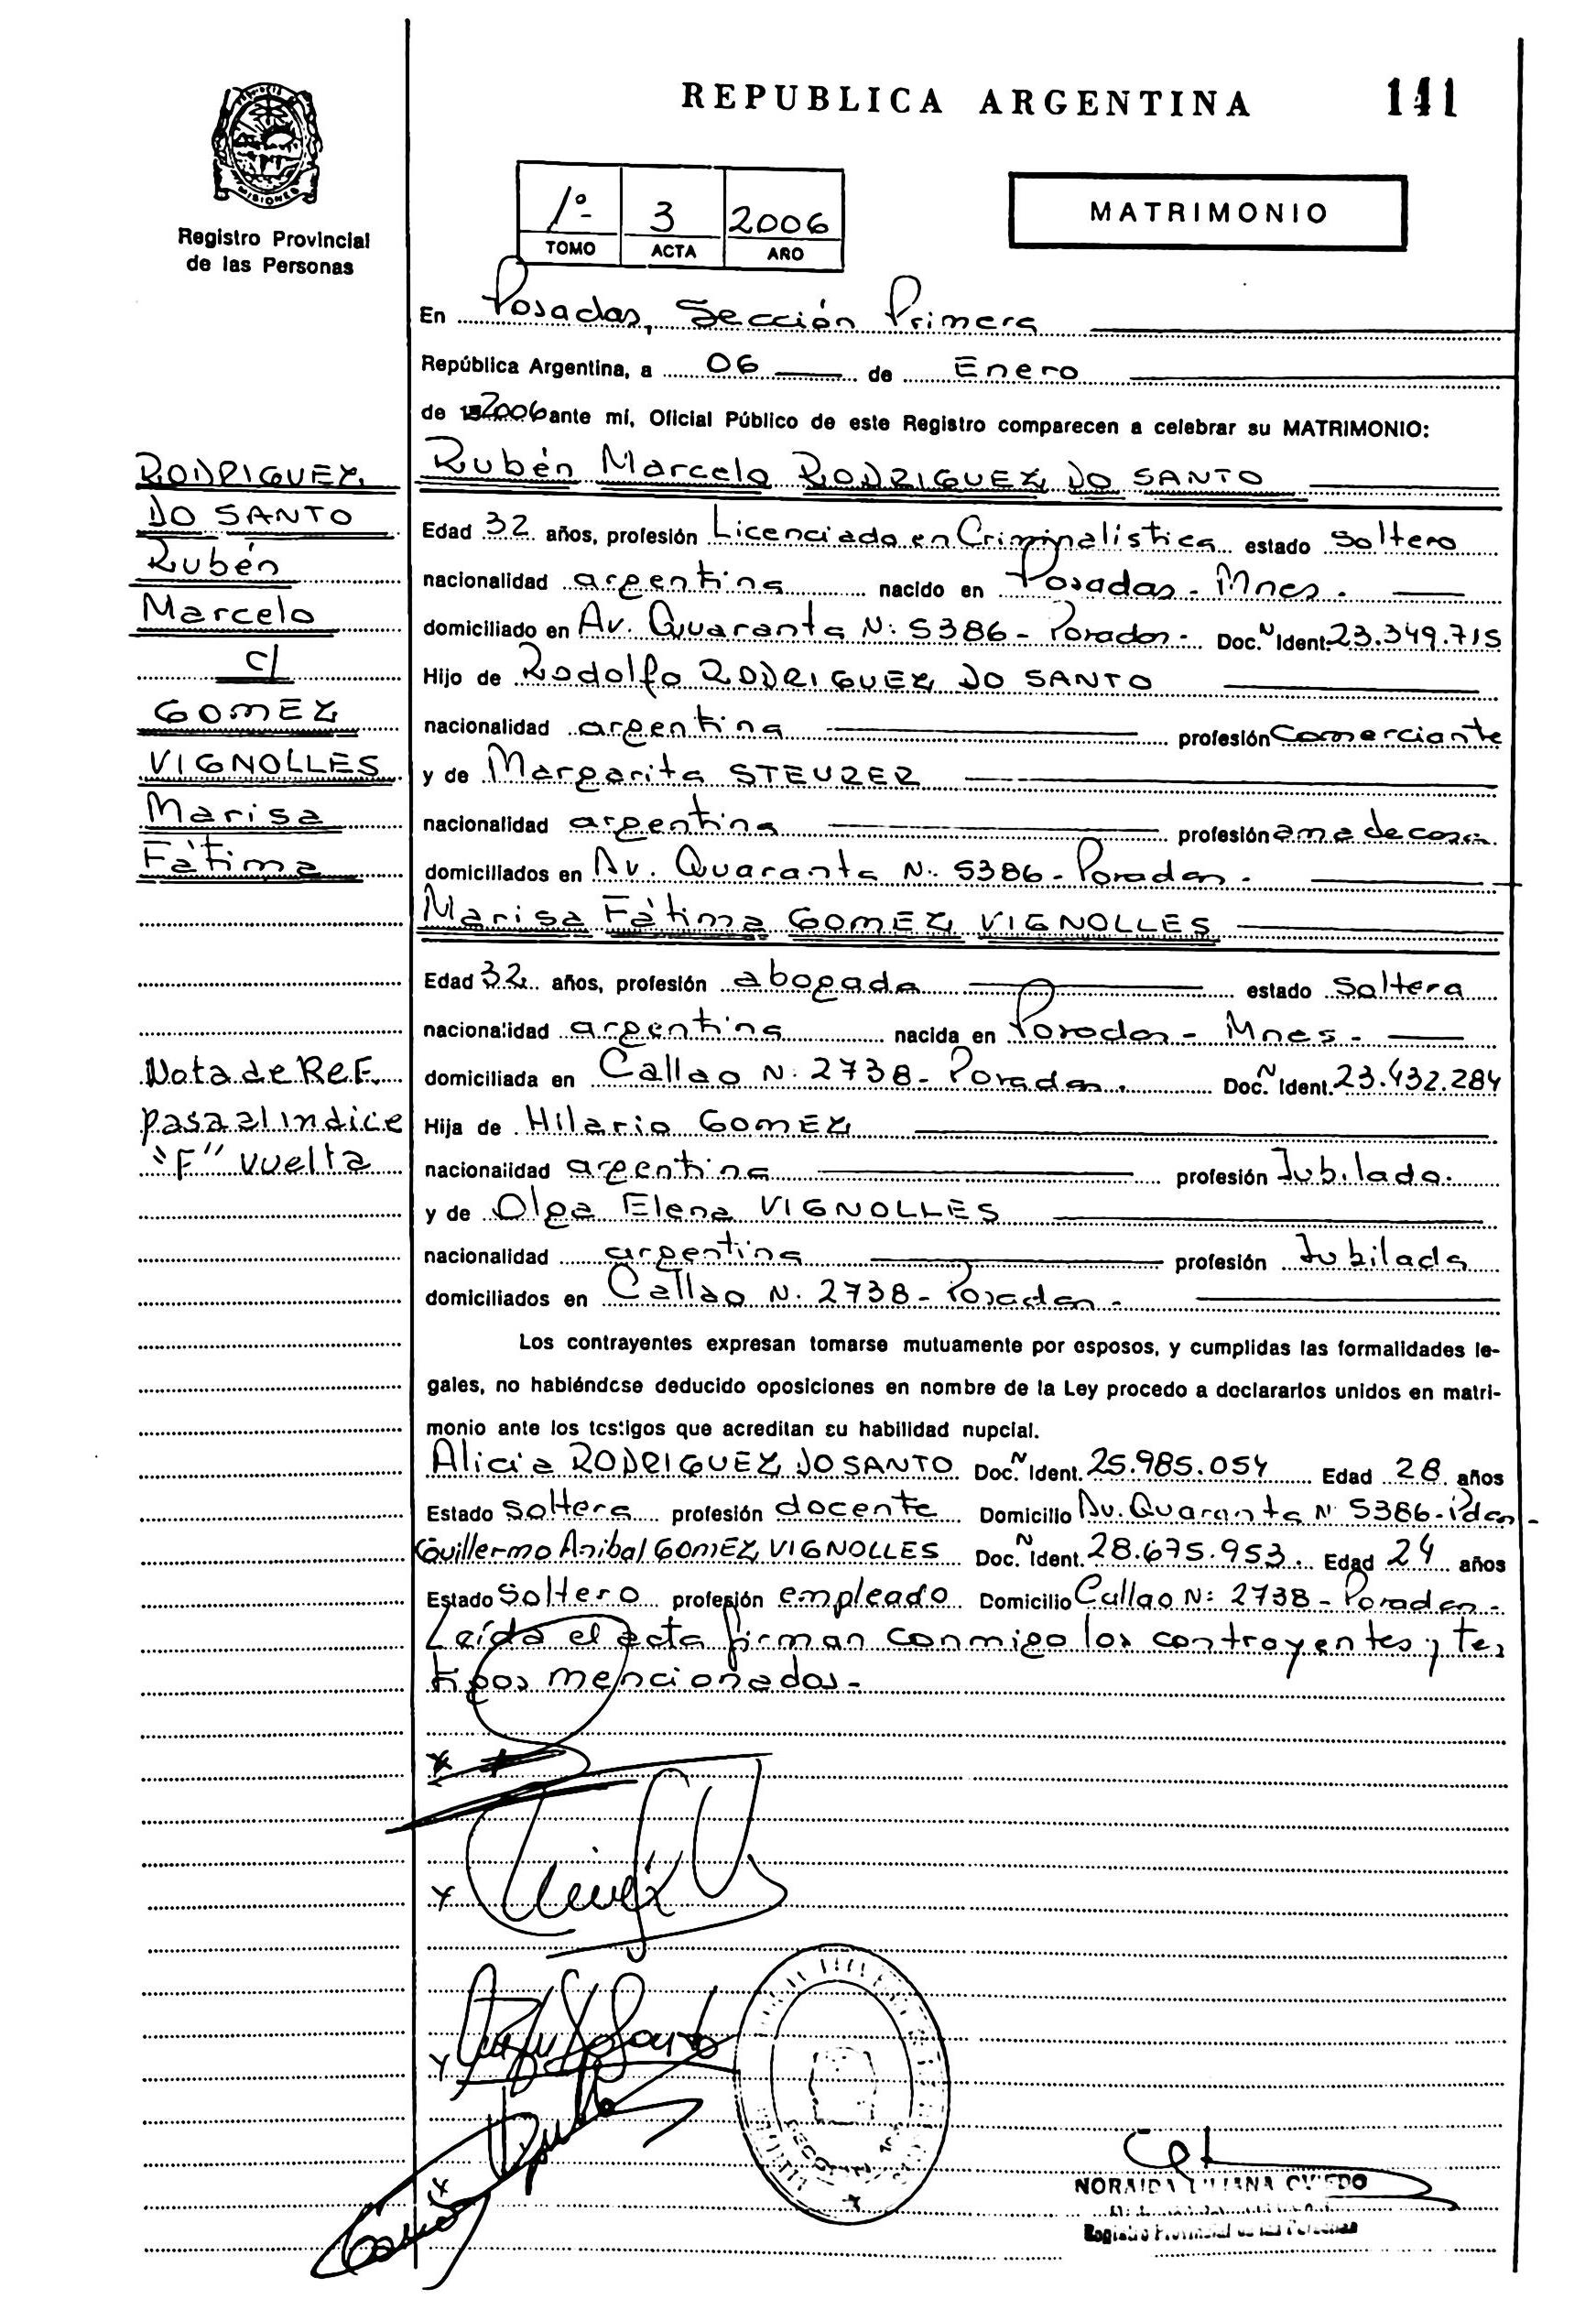 REPUBLICA ARGENTINA 141
MISIONES
Registro Provincial
de las Personas
1º 3 2006
TOMO ACTA AÑO
MATRIMONIO
En Posadas, Sección Primera
República Argentina, a 06 de Enero
de 2006 ante mí, Oficial Público de este Registro comparecen a celebrar su MATRIMONIO:
RODRIGUEZ
DO SANTO
Rubén
Marcelo
c/
GOMEZ
VIGNOLLES
Marisa
Fátima
Nota de Ref.
pasa al indice
"F" vuelta
Rubén Marcelo RODRIGUEZ DO SANTO
Edad 32 años, profesión Licenciado en Criminalística estado soltero
nacionalidad argentina nacido en Posadas - Mnes.
domiciliado en Av. Quaranta N: 5386 - Posadas - Doc. N Ident. 23.349.715
Hijo de Rodolfo RODRIGUEZ DO SANTO
nacionalidad argentina profesión Comerciante
y de Margarita STEURER
nacionalidad argentina profesión ama de casa
domiciliados en Av. Quaranta N: 5386 - Posadas -
Marisa Fátima GOMEZ VIGNOLLES
Edad 32 años, profesión abogada estado soltera
nacionalidad argentina nacida en Posadas - Mnes -
domiciliada en Callao N: 2738 - Posadas. Doc. N Ident. 23.432.284
Hija de Hilario GOMEZ
nacionalidad argentina profesión Jubilado.
y de Olga Elena VIGNOLLES
nacionalidad argentina profesión Jubilada
domiciliados en Callao N. 2738 - Posadas -
Los contrayentes expresan tomarse mutuamente por esposos, y cumplidas las formalidades le-
gales, no habiéndose deducido oposiciones en nombre de la Ley procedo a declararlos unidos en matri-
monio ante los testigos que acreditan su habilidad nupcial.
Alicia RODRIGUEZ DO SANTO Doc. N Ident. 25.985.054 Edad 28 años
Estado soltera profesión docente Domicilio Av. Quaranta N 5386 - Pdas -
Guillermo Anibal GOMEZ VIGNOLLES Doc. N Ident. 28.675.953. Edad 24 años
Estado soltero profesión empleado Domicilio Callao N: 2738 - Posadas -
Leída el acta firman conmigo los contrayentes y tes
tigos mencionados -
NORAIDA LILIANA OVIEDO
Registro Provincial de las Personas